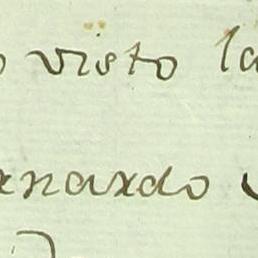 o visto la
rnardo